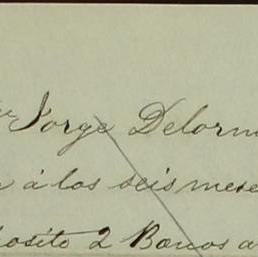 Jorge Delorm
á los seis mese
osito 2 Bonos a